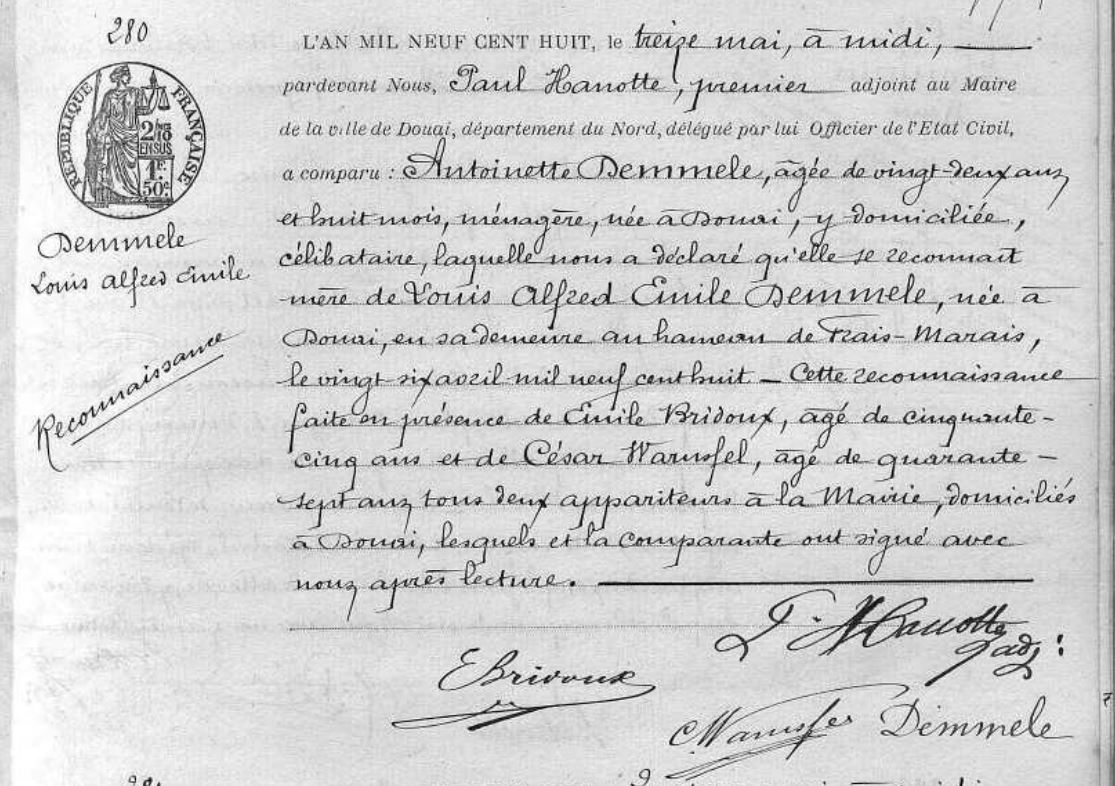 280
L'AN MIL NEUF CENT HUIT, le treize mai, à midi,
pardevant Nous, Paul Hanotte, premier adjoint au Maire
de la ville de Douai, département du Nord, délégué par lui Officier de l'Etat Civil,
a comparu : Antoinette Demmele, âgée de vingt-deux ans
et huit mois, ménagère, née à Douai, y domiciliée,
célibataire, laquelle nous a déclaré qu'elle se reconnait
mère de Louis Alfred Emile Demmele, née à
Douai, en sa demeure au hameau de Frais-Marais,
le vingt six avril mil neuf cent huit _ Cette reconnaissance
faite en présence de Emile Bridoux, âgé de cinquante-
cinq ans et de César Warusfel, âgé de quarante-
sept ans tous deux appariteurs à la Mairie, domiciliés
à Douai, lesquels et la comparante ont signé avec
nous après lecture.
RÉPUBLIQUE FRANÇAISE
2/10
EN SUS
1F.
50c.
Demmele
Louis Alfred Emile
Reconnaissance
P. Hanotte
adj:
E Bridoux
C Warusfel Demmele